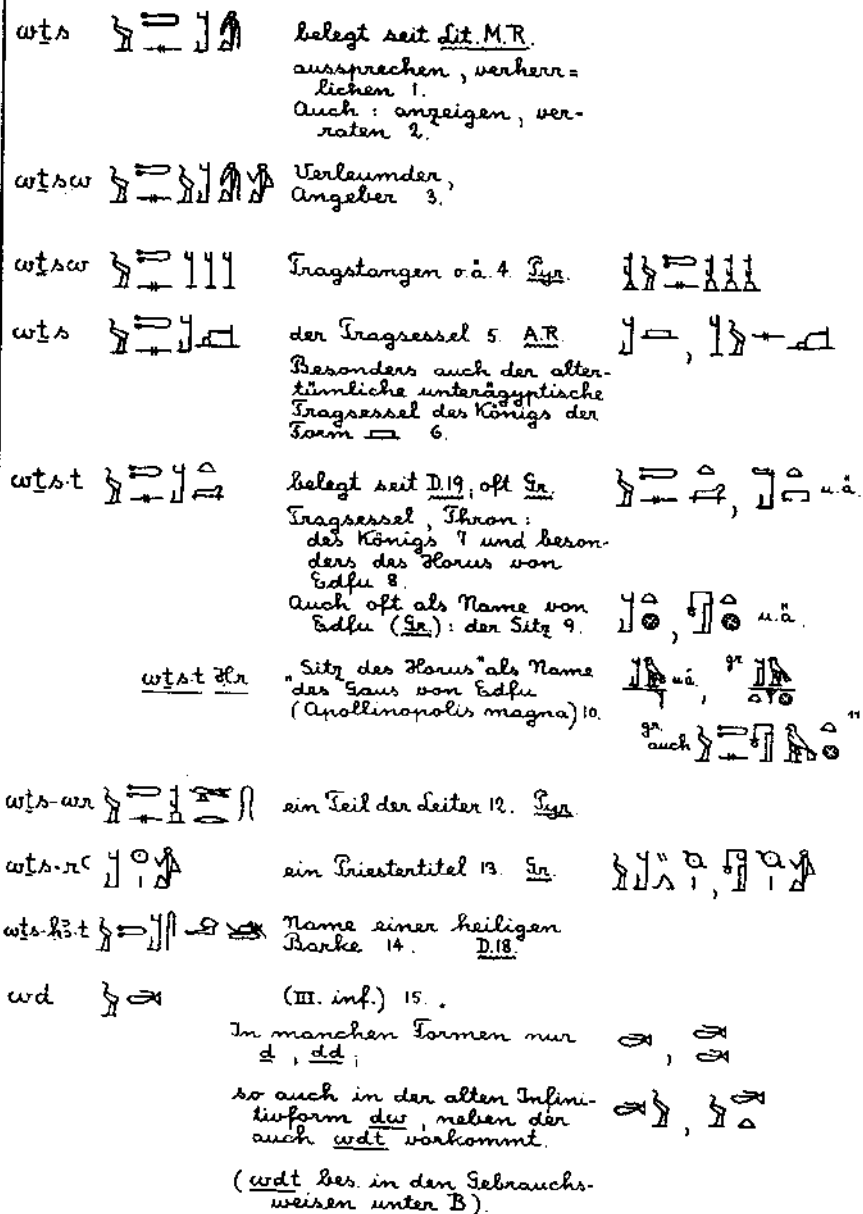 wṯs belegt seit Lit. M.R.
aussprechen, verherr=
lichen 1.
Auch: anzeigen, ver-
raten 2.
wṯsw Verleumder,
Angeber 3.
wṯsw Tragstangen o.ä. 4. Pyr.
wṯs der Tragsessel 5. A.R.
Besonders auch der alter-
tümliche unterägyptische
Tragsessel des Königs der
Form 6.
wṯs.t belegt seit D.19, oft Gr. u.ä.
Tragsessel, Thron:
des Königs 7 und beson-
ders des Horus von
Edfu 8.
Auch oft als Name von
Edfu (Gr.): der Sitz 9. u.ä.
wṯs.t Ḥr „Sitz des Horus" als Name u.ä., gr.
des Gaus von Edfu
(Apollinopolis magna) 10.
gr. auch 11
wṯs-wr ein Teil der Leiter 12. Pyr.
wṯs-rꜥ ein Priestertitel 13. Gr.
wṯs-ḥꜣ.t Name einer heiligen
Barke 14. D.18.
wd (III. inf.) 15.
In manchen Formen nur
d, dd;
so auch in der alten Infini-
tivform dw, neben der
auch wdt vorkommt.
(wdt bes. in den Gebrauchs-
weisen unter B).